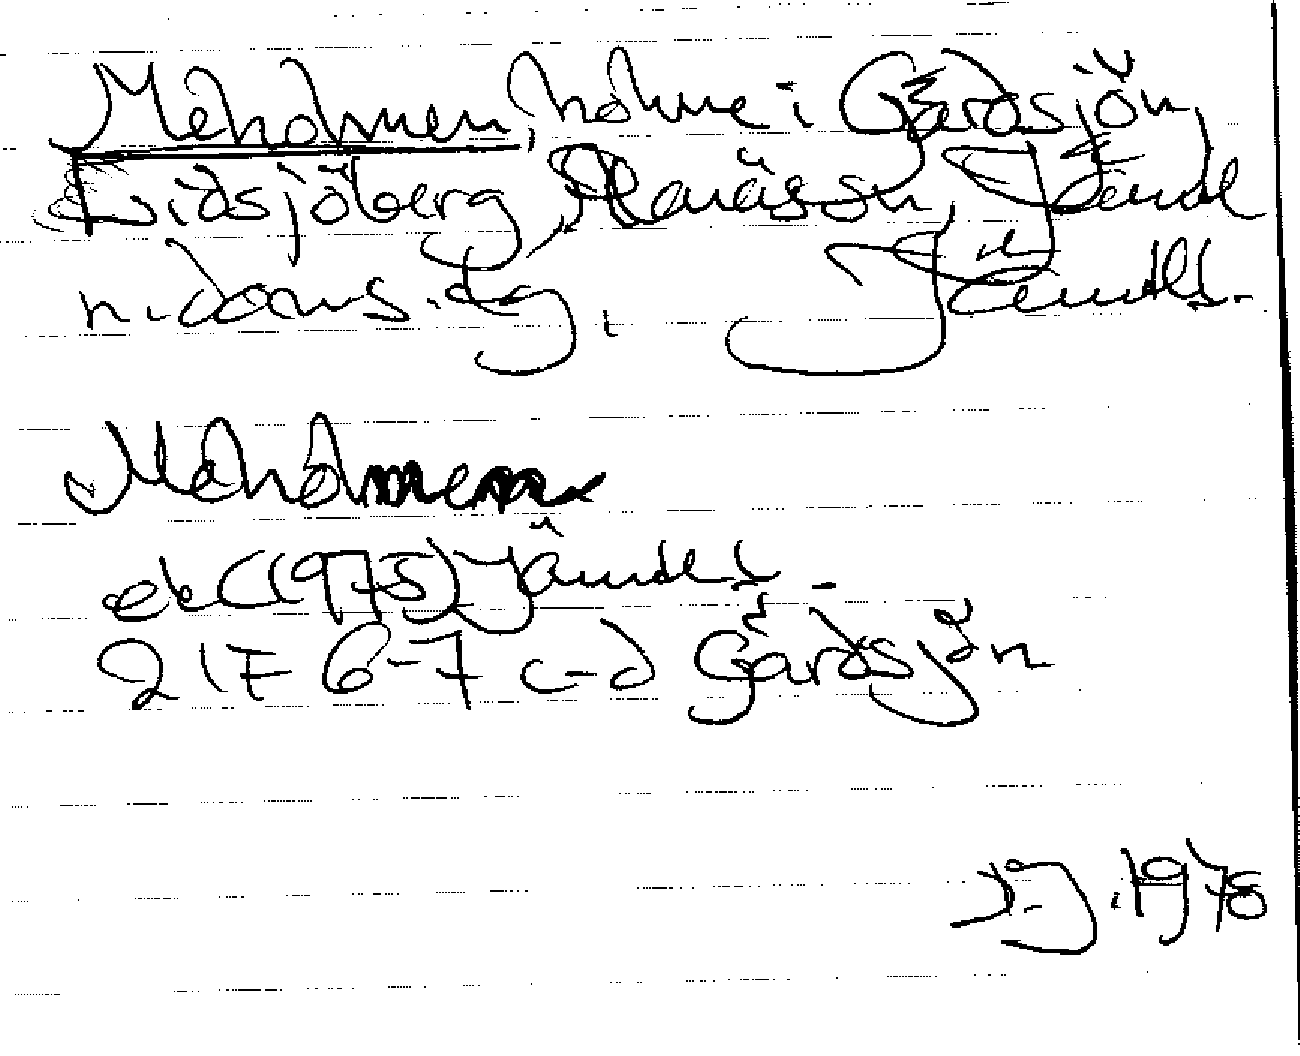 Meholmen, holme i Gårdsjön,
Lidsjöberg, Alanäs sn, Jämtl
n.  Jämtl.
Meholmen
ek (1975) Jämtl.
217 6-7 c-d Gårdsjön
1978